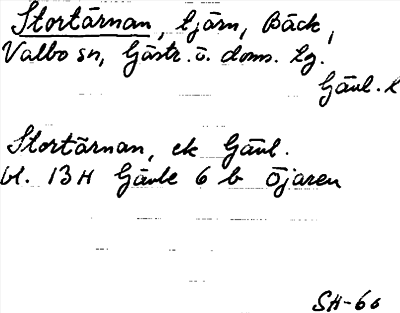 Stortärnan, tjärn, Bäck,
Valbo sn, Gästr. ö. doms. lg.
Gävl. l
Stortärnan, ek Gävl.
bl. 13 H Gävle 6 b Öjaren
SH-66